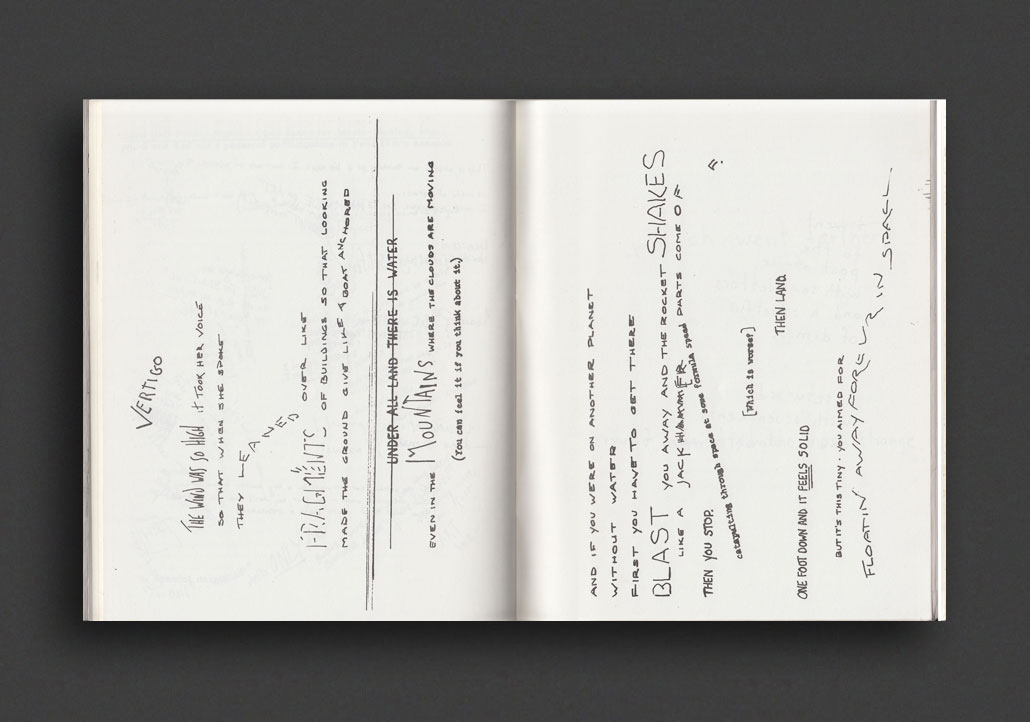 VERTIGO
THE WIND WAS SO HIGH it TOOK HER VOICE
SO THAT WHEN SHE SPOKE
THEY LEANED OVER LIKE
FRAGMENTS OF BUILDINGS SO THAT LOOKING
MADE THE GROUND GIVE LIKE A BOAT ANCHORED
UNDER ALL LAND THERE IS WATER
EVEN IN THE MOUNTAINS WHERE THE CLOUDS ARE MOVING
(You can feel it if you think about it.)
AND IF YOU WERE ON ANOTHER PLANET
WITHOUT WATER
FIRST YOU HAVE TO GET THERE
BLAST YOU AWAY AND THE ROCKET SHAKES
LIKE A JACKHAMMER PARTS COME OFF.
THEN YOU STOP.
catapulting through space at some formula speed
[Which is worse?]
THEN LAND
ONE FOOT DOWN AND IT FEELS SOLID
BUT IT'S THIS TINY. YOU AIMED FOR
FLOATIN AWAY FOREVER IN SPACE.